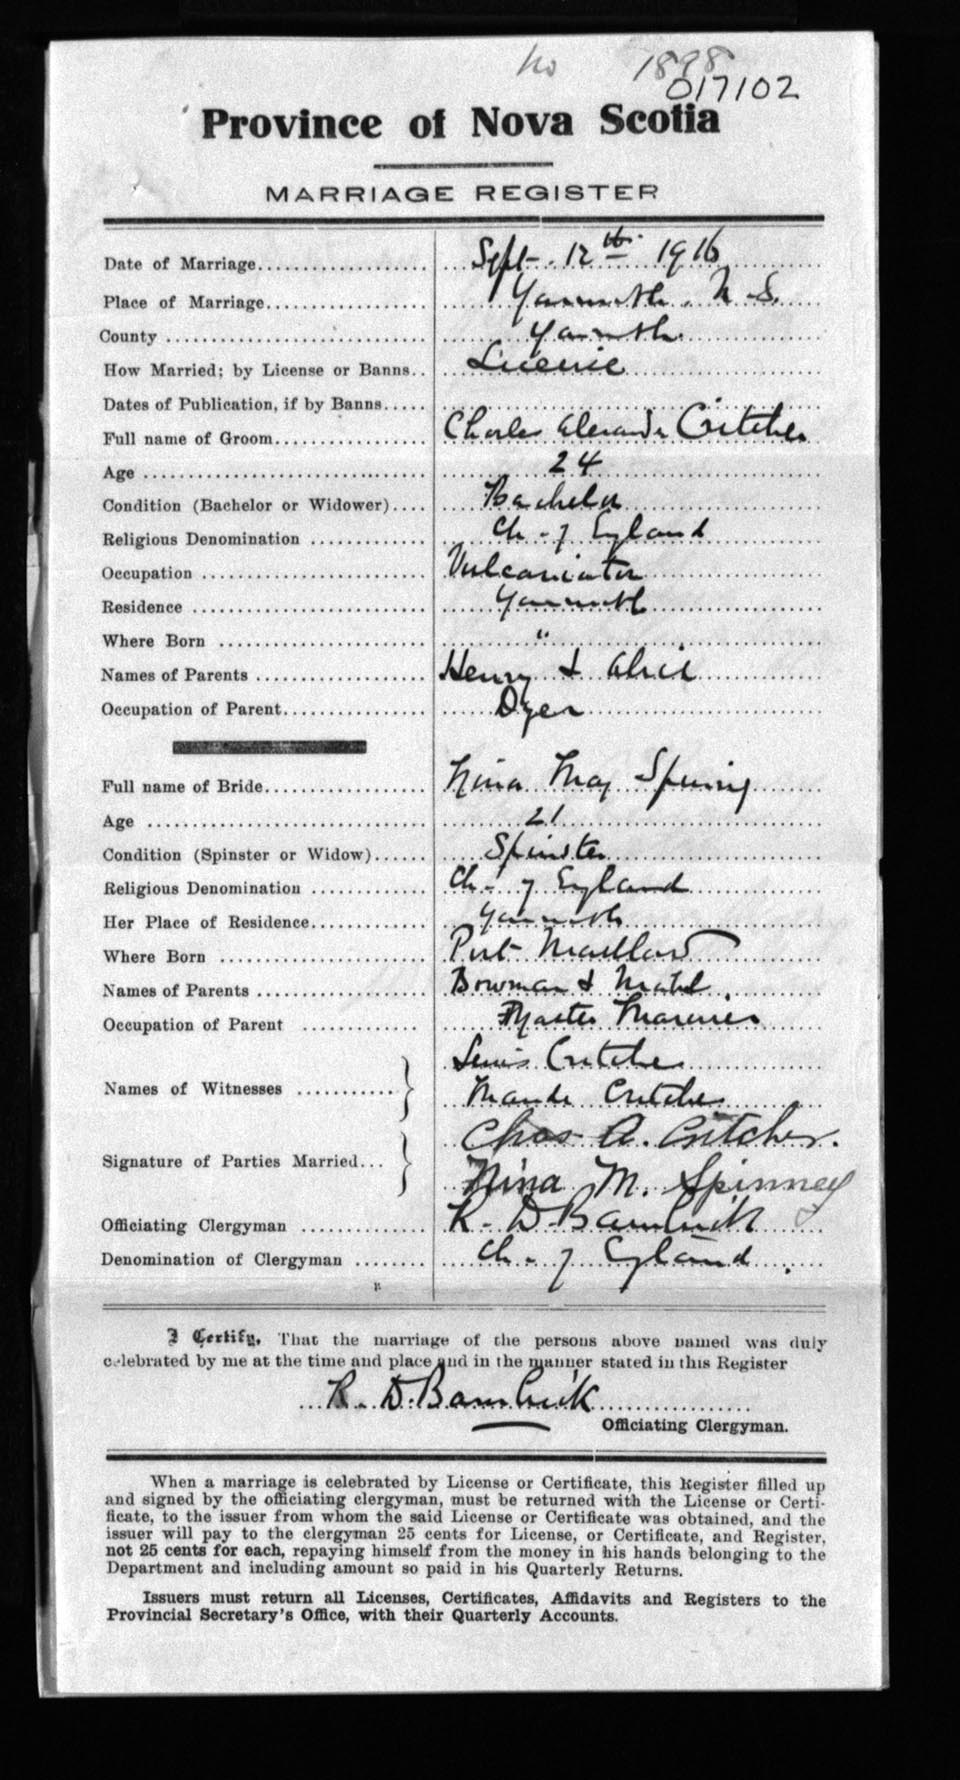 No 1898
017102
Province of Nova Scotia
MARRIAGE REGISTER
Date of Marriage.................... Sept. 12th 1916
Place of Marriage................... Yarmouth. N.S.
County ............................ Yarmouth.
How Married; by License or Banns.. License
Dates of Publication, if by Banns.....
Full name of Groom................. Charles Alexander Critcher
Age ............................... 24
Condition (Bachelor or Widower).... Bachelor
Religious Denomination ............ Ch. of England
Occupation ........................ Vulcaniator
Residence ......................... Yarmouth
Where Born ....................... "
Names of Parents .................. Henry & Alice
Occupation of Parent................ Dyer
Full name of Bride.................. Nina May Spinney
Age ............................... 21
Condition (Spinster or Widow)...... Spinster
Religious Denomination ............ Ch. of England
Her Place of Residence............. Yarmouth
Where Born ....................... Port Maitland
Names of Parents .................. Bowman & Mabel
Occupation of Parent ............. Master Mariner
Names of Witnesses ........... } Lewis Critcher
Maude Critcher
Signature of Parties Married... } Chas A. Critcher.
Nina M. Spinney
Officiating Clergyman ............. R. D. Bambrick
Denomination of Clergyman ........ Ch. of England.
I Certify, That the marriage of the persons above named was duly
celebrated by me at the time and place and in the manner stated in this Register
R. D. Bambrick
Officiating Clergyman.
When a marriage is celebrated by License or Certificate, this Register filled up
and signed by the officiating clergyman, must be returned with the License or Certi-
ficate, to the issuer from whom the said License or Certificate was obtained, and the
issuer will pay to the clergyman 25 cents for License, or Certificate, and Register,
not 25 cents for each, repaying himself from the money in his hands belonging to the
Department and including amount so paid in his Quarterly Returns.
Issuers must return all Licenses, Certificates, Affidavits and Registers to the
Provincial Secretary's Office, with their Quarterly Accounts.